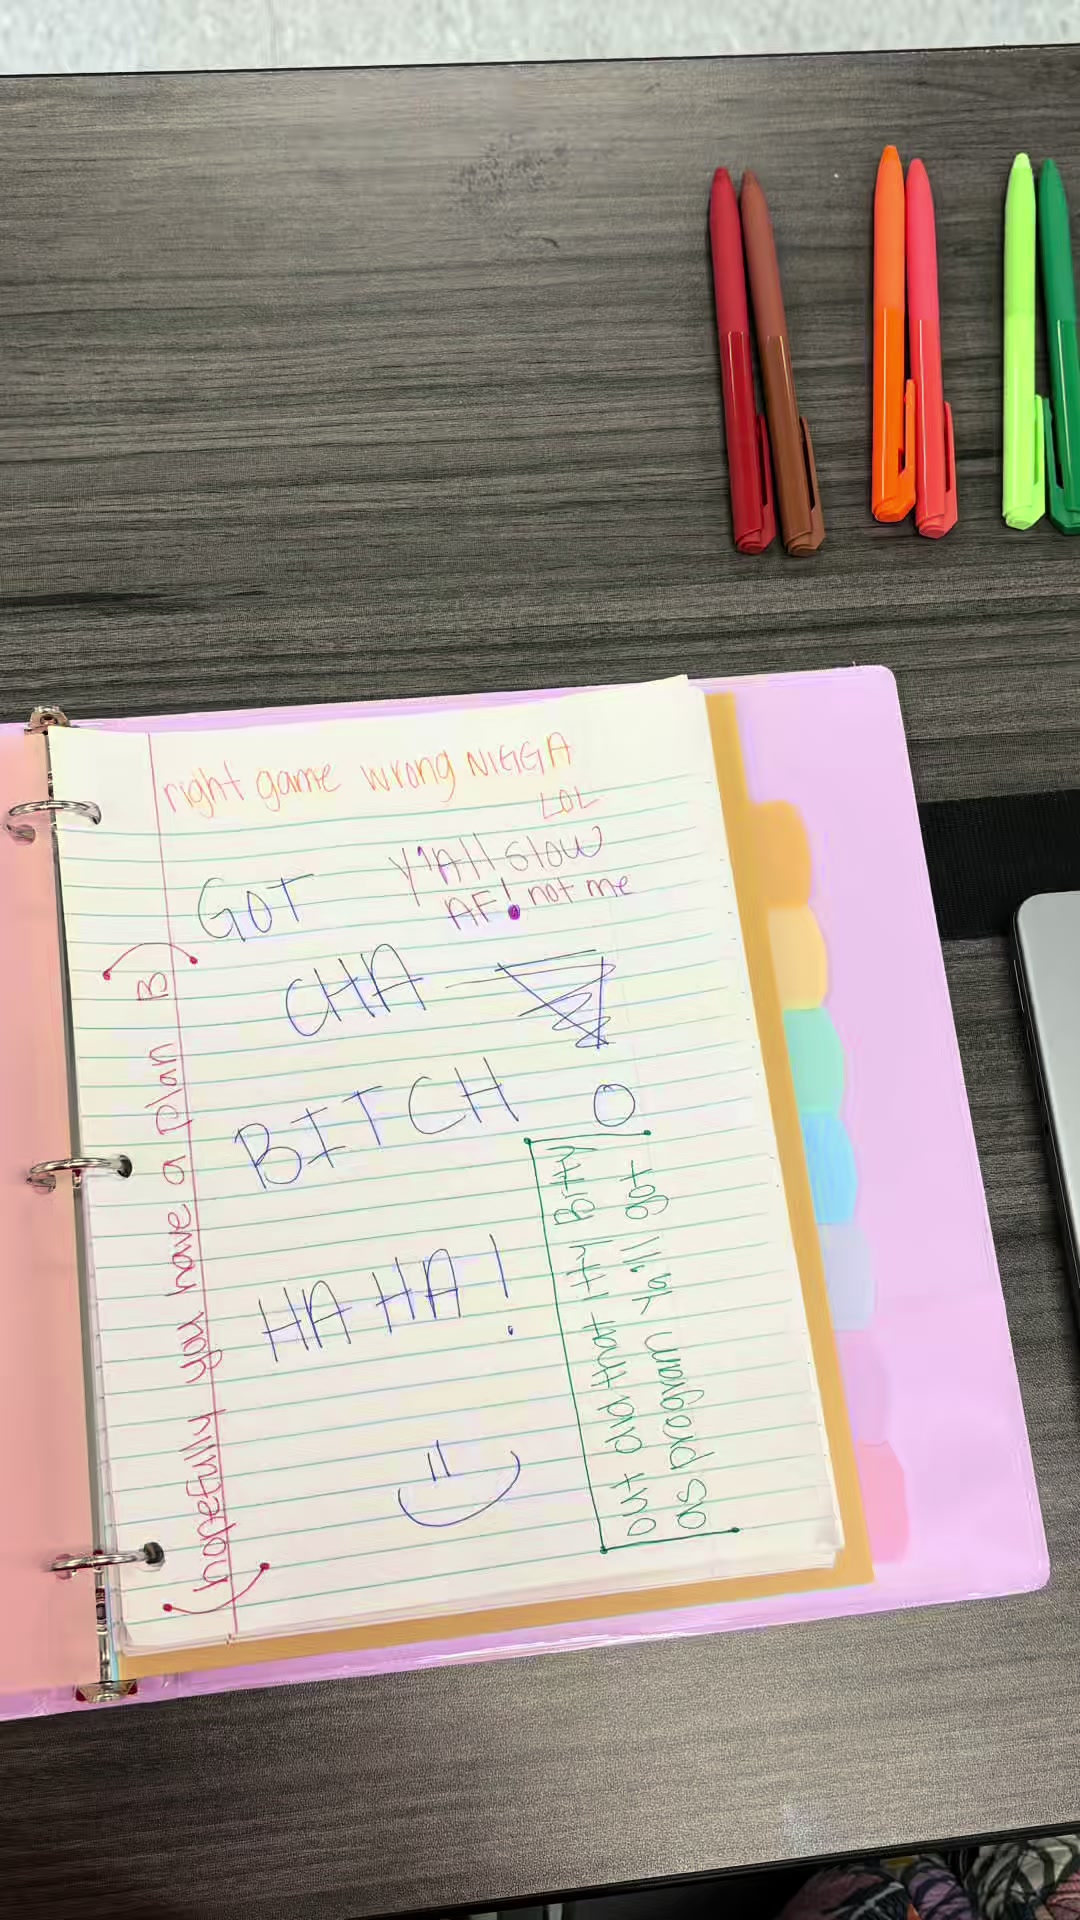 right game wrong NIGGA
LOL
Y'All slow
AF! not me
GOT
CHA
BITCH
HA HA!
(hopefully you have a plan B)
out and that Itty Bitty
as program Ya'll got